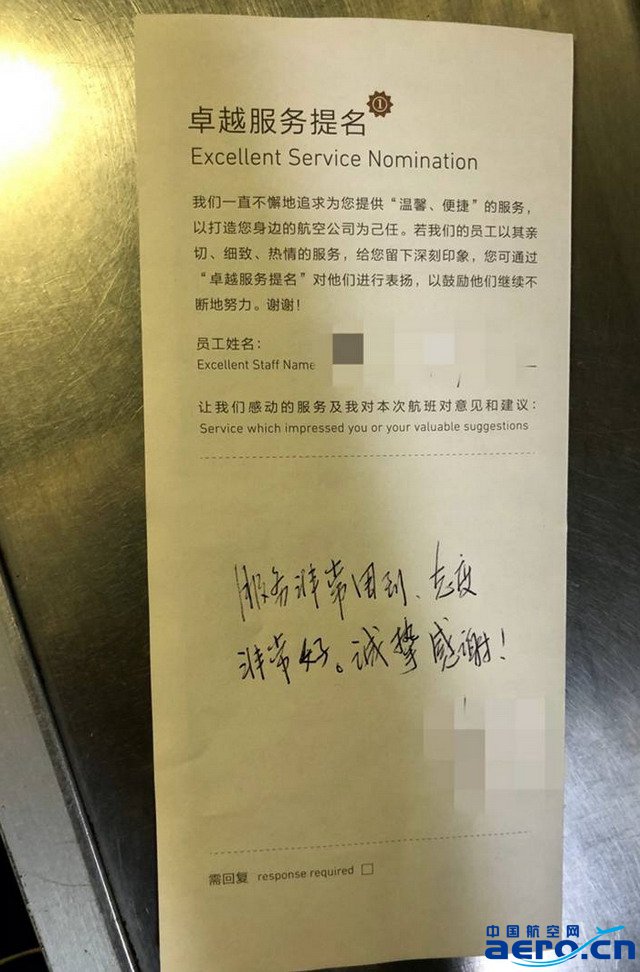 卓越服务提名①
Excellent Service Nomination
我们一直不懈地追求为您提供“温馨、便捷”的服务，
以打造您身边的航空公司为己任。若我们的员工以其亲
切、细致、热情的服务，给您留下深刻印象，您可通过
“卓越服务提名”对他们进行表扬，以鼓励他们继续不
断地努力。谢谢！
员工姓名：
Excellent Staff Name
让我们感动的服务及我对本次航班对意见和建议：
Service which impressed you or your valuable suggestions
服务非常周到、态度
非常好。诚挚感谢！
需回复 response required
中国航空网
aero.cn